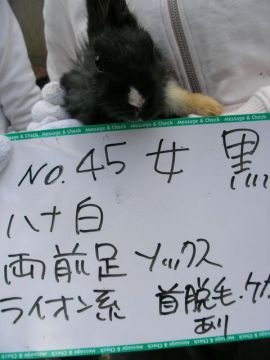 Message & Check Message & Check Message & Check Message & Check
No. 45 女 黒
ハナ白
両前足 ソックス
ライオン系 首脱毛・ケガ
あり
Message & Check Message & Check Message & Check